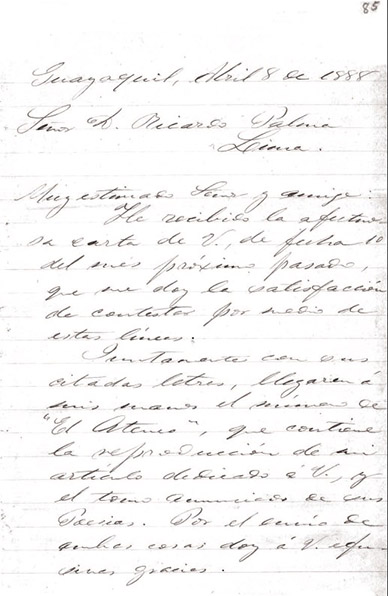 85
Guayaquil, Abril 8 de 1888
Señor D. Ricardo Palma
Lima.
Muy estimado Señor y amigo.
He recibido la afectuo
sa carta de V., de fecha 10
del mes próximo pasado,
que me doy la satisfacción
de contestar por medio de
estas líneas.
Juntamente con sus
citadas letras, llegaron á
mis manos el número de
"El Ateneo", que contiene
la reproducción de mi
artículo dedicado á V., y
el tomo anunciado de sus
Poesías. Por el envío de
ambas cosas doy á V. expre
sivas gracias.